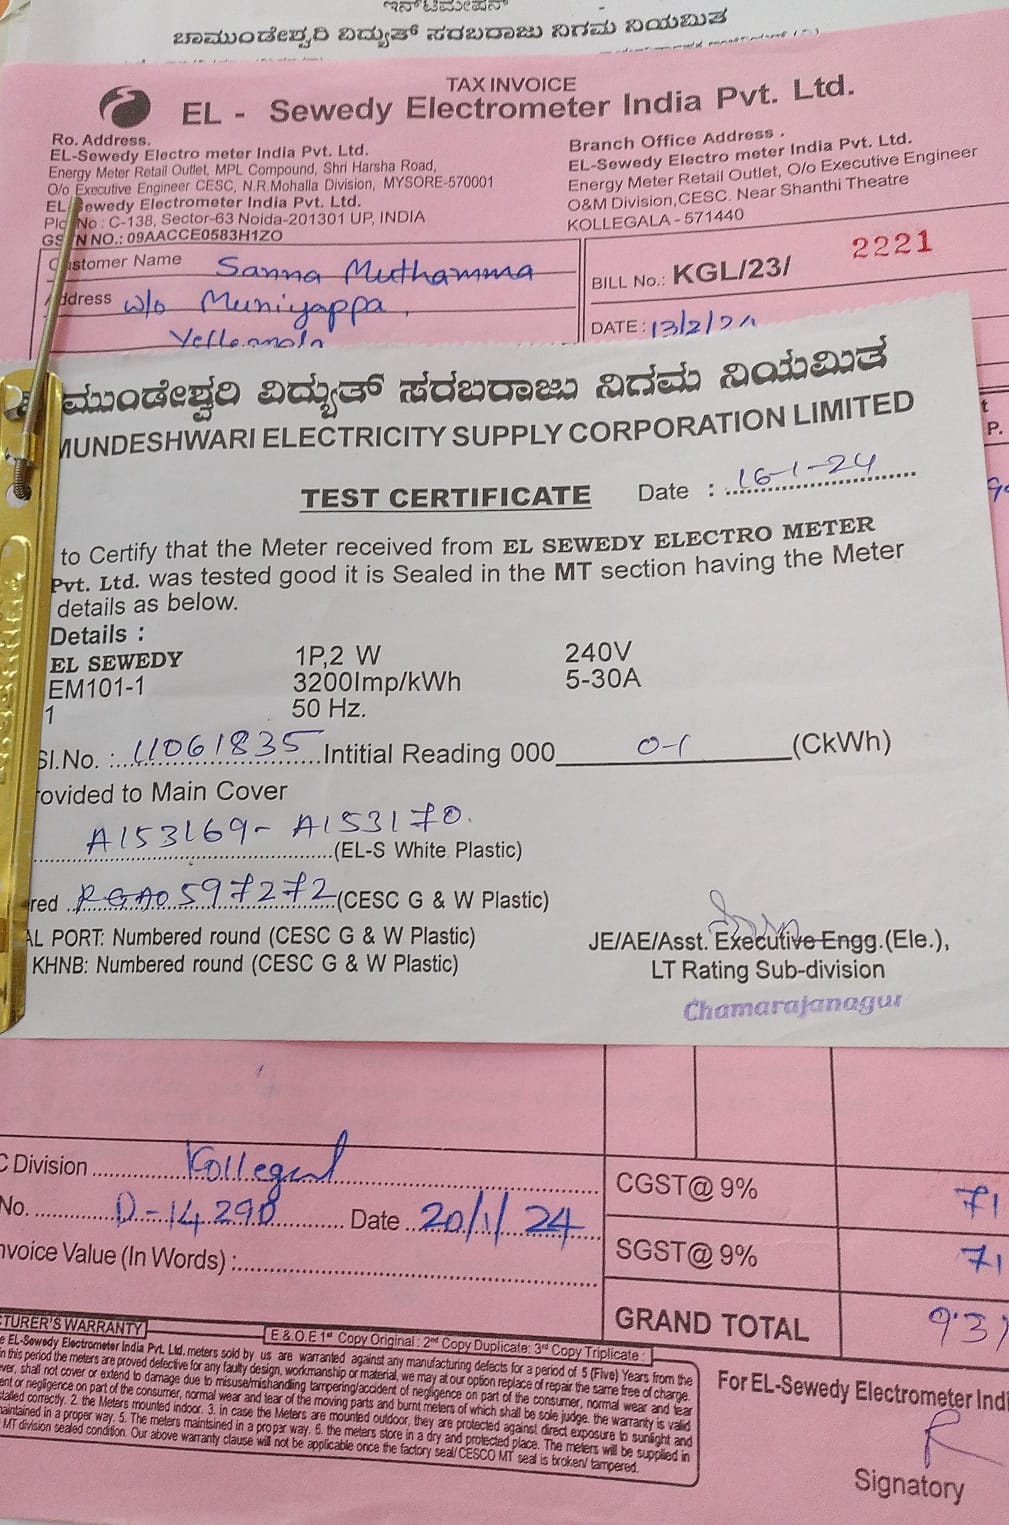 ಇನ್‌ಟಿಮೇಷನ್
ಚಾಮುಂಡೇಶ್ವರಿ ವಿದ್ಯುತ್ ಸರಬರಾಜು ನಿಗಮ ನಿಯಮಿತ
TAX INVOICE
EL - Sewedy Electrometer India Pvt. Ltd.
Ro. Address.
EL-Sewedy Electro meter India Pvt. Ltd.
Energy Meter Retail Outlet, MPL Compound, Shri Harsha Road,
O/o Executive Engineer CESC, N.R.Mohalla Division, MYSORE-570001
EL-Sewedy Electrometer India Pvt. Ltd.
No : C-138, Sector-63 Noida-201301 UP, INDIA
NO.: 09AACCE0583H1ZO
Branch Office Address .
EL-Sewedy Electro meter India Pvt. Ltd.
Energy Meter Retail Outlet, O/o Executive Engineer
O&M Division,CESC. Near Shanthi Theatre
KOLLEGALA - 571440
Customer Name Sanna Muthamma
Address w/o Muniyappa,
BILL No.: KGL/23/ 2221
DATE : 13/2/24
ಮುಂಡೇಶ್ವರಿ ವಿದ್ಯುತ್ ಸರಬರಾಜು ನಿಗಮ ನಿಯಮಿತ
MUNDESHWARI ELECTRICITY SUPPLY CORPORATION LIMITED
TEST CERTIFICATE Date : 16-1-24
to Certify that the Meter received from EL SEWEDY ELECTRO METER
Pvt. Ltd. was tested good it is Sealed in the MT section having the Meter
details as below.
Details :
EL SEWEDY 1P,2 W 240V
EM101-1 3200Imp/kWh 5-30A
1 50 Hz.
Sl.No. : 11061835 Intitial Reading 000 0-1 (CkWh)
rovided to Main Cover
A153169- A153170.
(EL-S White Plastic)
red 597272 (CESC G & W Plastic)
AL PORT: Numbered round (CESC G & W Plastic)
KHNB: Numbered round (CESC G & W Plastic)
JE/AE/Asst. Executive Engg.(Ele.),
LT Rating Sub-division
Chamarajanagar
C Division Kollegal
No. D-14290 Date 20/1/24
nvoice Value (In Words) :
CGST@ 9% 71
SGST@ 9% 71
GRAND TOTAL 937
CTURER'S WARRANTY
E.& O.E.1st Copy Original : 2nd Copy Duplicate: 3rd Copy Triplicate :
e EL-Sewedy Electrometer India Pvt. Ltd. meters sold by us are warranted against any manufacturing defects for a period of 5 (Five) Years from the
in this period the meters are proved defective for any faulty design, workmanship or material, we may at our option replace of repair the same free of charge.
ver, shall not cover or extend to damage due to misuse/mishandling tampering/accident of negligence on part of the consumer, normal wear and tear
ent or negligence on part of the consumer, normal wear and tear of the moving parts and burnt meters of which shall be sole judge. the warranty is valid
stalled correctly. 2. the Meters mounted indoor. 3. in case the Meters are mounted outdoor, they are protected against direct exposure to sunlight and
maintained in a proper way. 5. The meters maintsined in a proper way. 6. the meters store in a dry and protected place. The meters will be supplied in
MT division sealed condition. Our above warranty clause will not be applicable once the factory seal/ CESCO MT seal is broken/ tampered.
For EL-Sewedy Electrometer Indi
Signatory